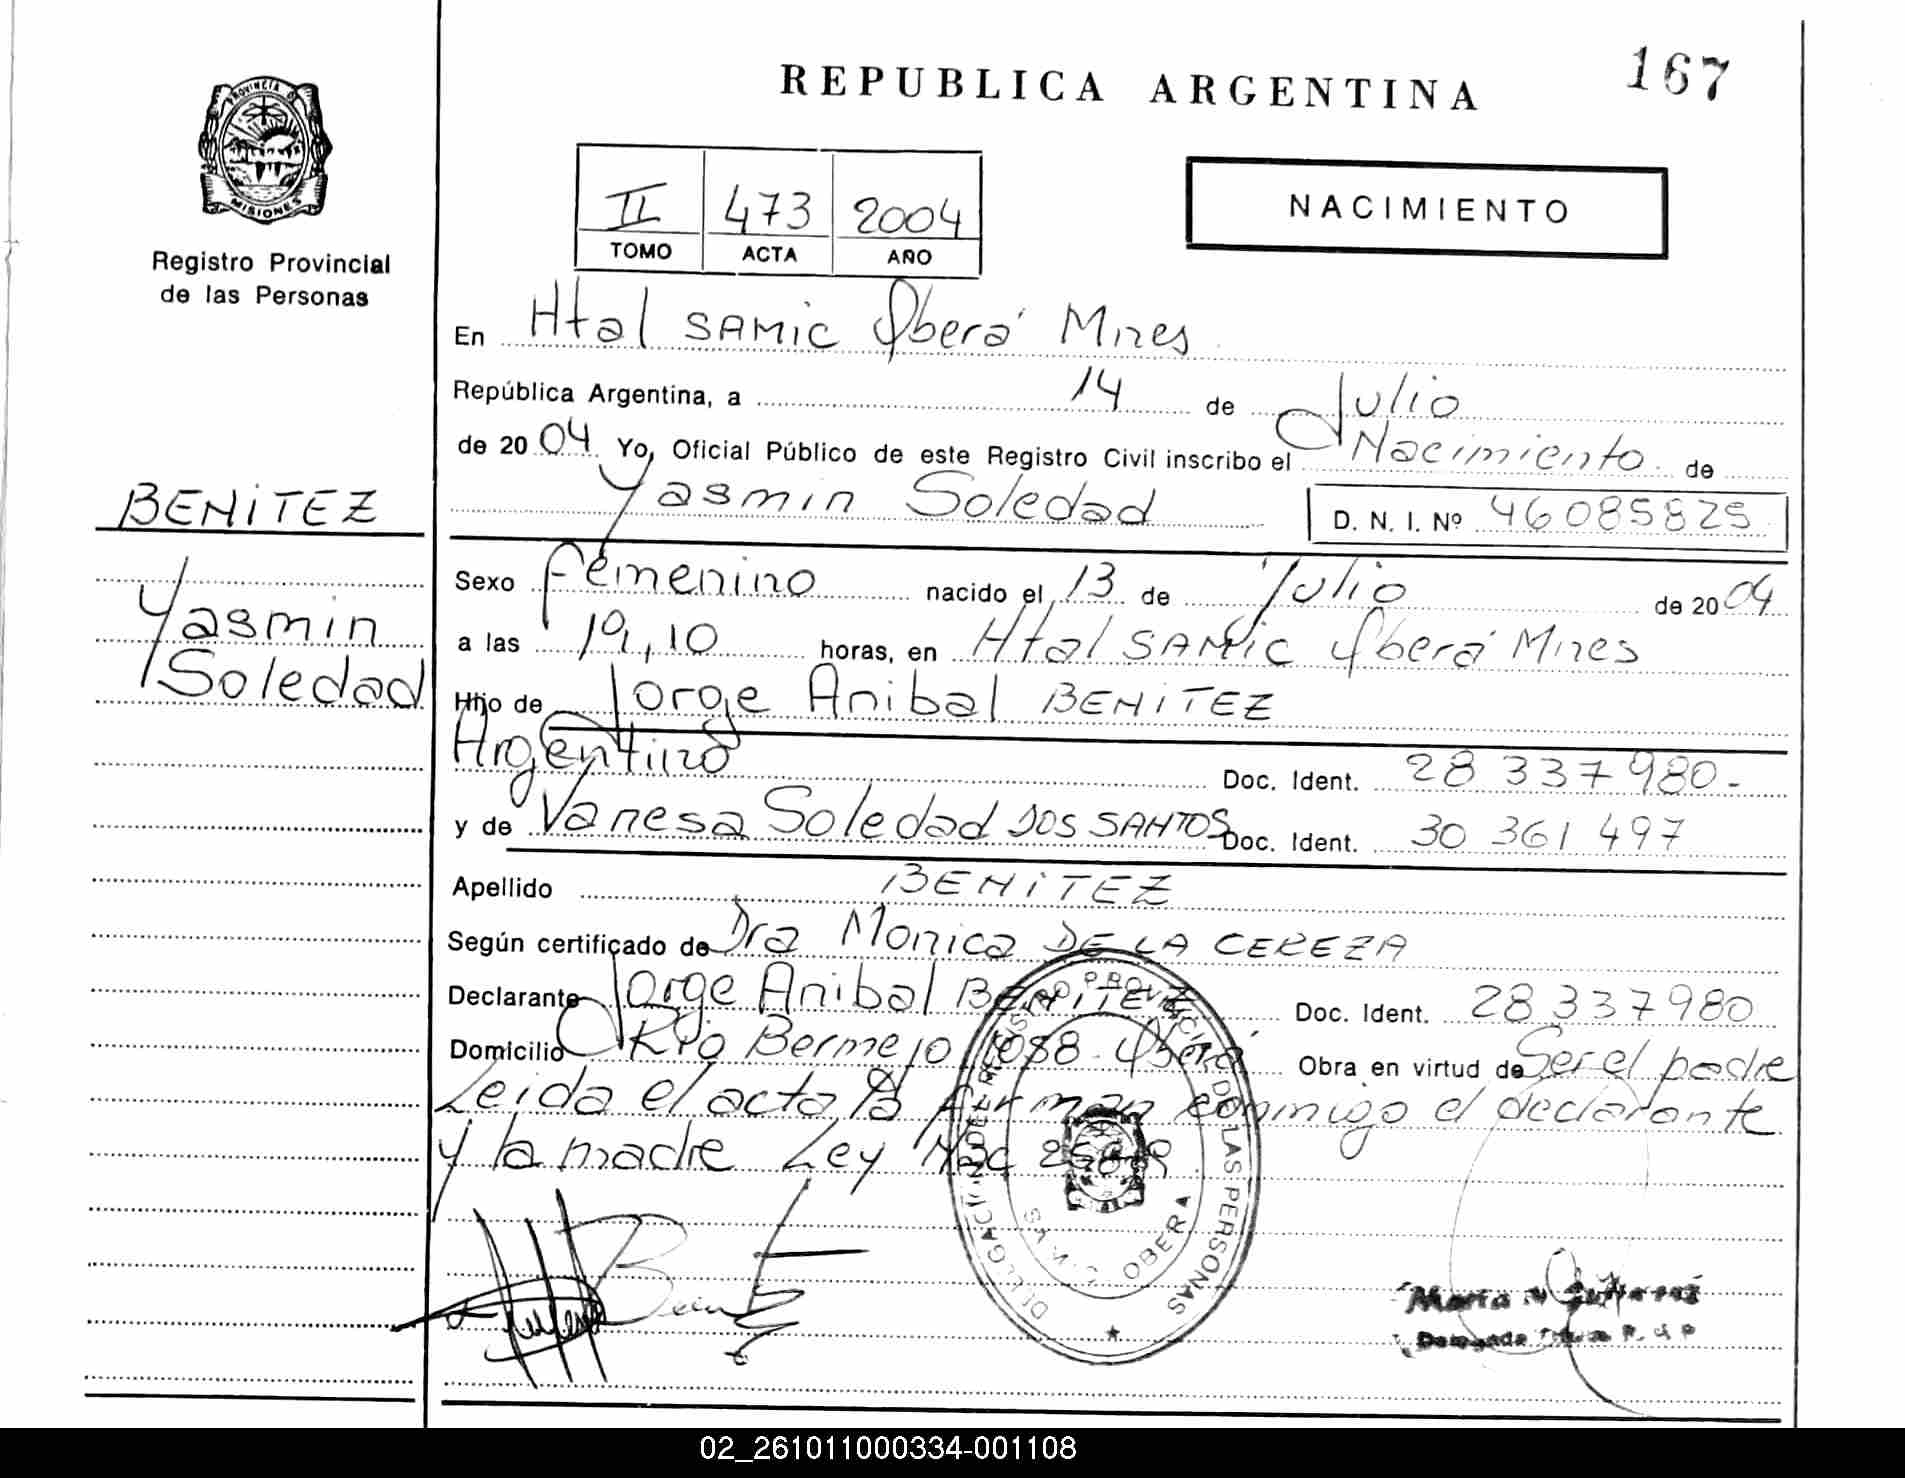 PROVINCIA D
MISIONES
Registro Provincial
de las Personas
BENITEZ
Yasmin
Soledad
REPUBLICA ARGENTINA
167
II 473 2004
TOMO ACTA AÑO
NACIMIENTO
En Htal SAMIC Oberá Mnes
República Argentina, a 14 de Julio
de 2004 Yo, Oficial Público de este Registro Civil inscribo el Nacimiento de
Yasmin Soledad D. N. I. Nº 46085825
Sexo femenino nacido el 13 de Julio de 2004
a las 19,10 horas, en Htal SAMIC Oberá Mnes
Hijo de Jorge Anibal BENITEZ
Argentino Doc. Ident. 28 337 980-
y de Vanesa Soledad DOS SANTOS Doc. Ident. 30 361 497
Apellido BENITEZ
Según certificado de Dra Monica DE LA CEREZA
Declarante Jorge Anibal BENITEZ Doc. Ident. 28 337980
Domicilio Rio Bermejo 1088 - Oberá Obra en virtud de Ser el padre
Leida el acta la firman conmigo el declarante
y la madre Ley Nac
DELEGACION DEL REGISTRO PROVINCIAL DE LAS PERSONAS
OBERA
Maria
02_261011000334-001108